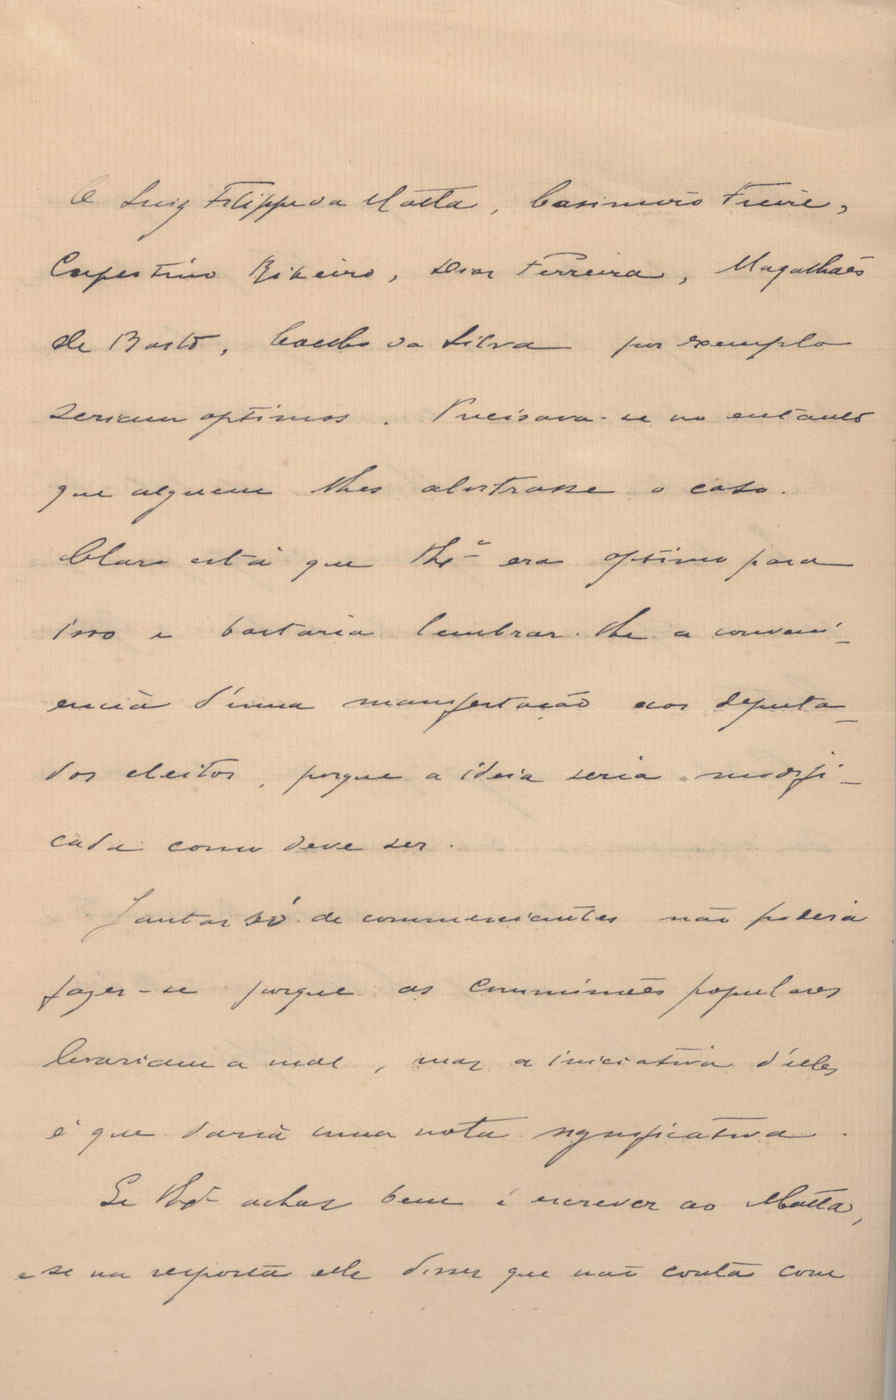 O Luiz Filippe da Matta, Casimiro Freire,
Cupertino Ribeiro, Dias Ferreira, Magalhães
de Basto, Coelho da Silva por exemplo
seriam optimos. Precisava-se no entanto
que alguem lhes alvitrasse o caso.
Claro está que era optimo para
isso e bastaria lembrar-lhe a conveni-
encia d'uma manifestação aos deputa-
dos eleitos, porque a ideia seria modifi-
cada como deve ser.
Jantar só de commerciantes não poderia
fazer-se porque as commissões populares
levariam a mal, mas a iniciativa d'elles
é que daria uma nota significativa.
Se achar bem é escrever ao Matta,
e se na resposta elle disser que não conta com